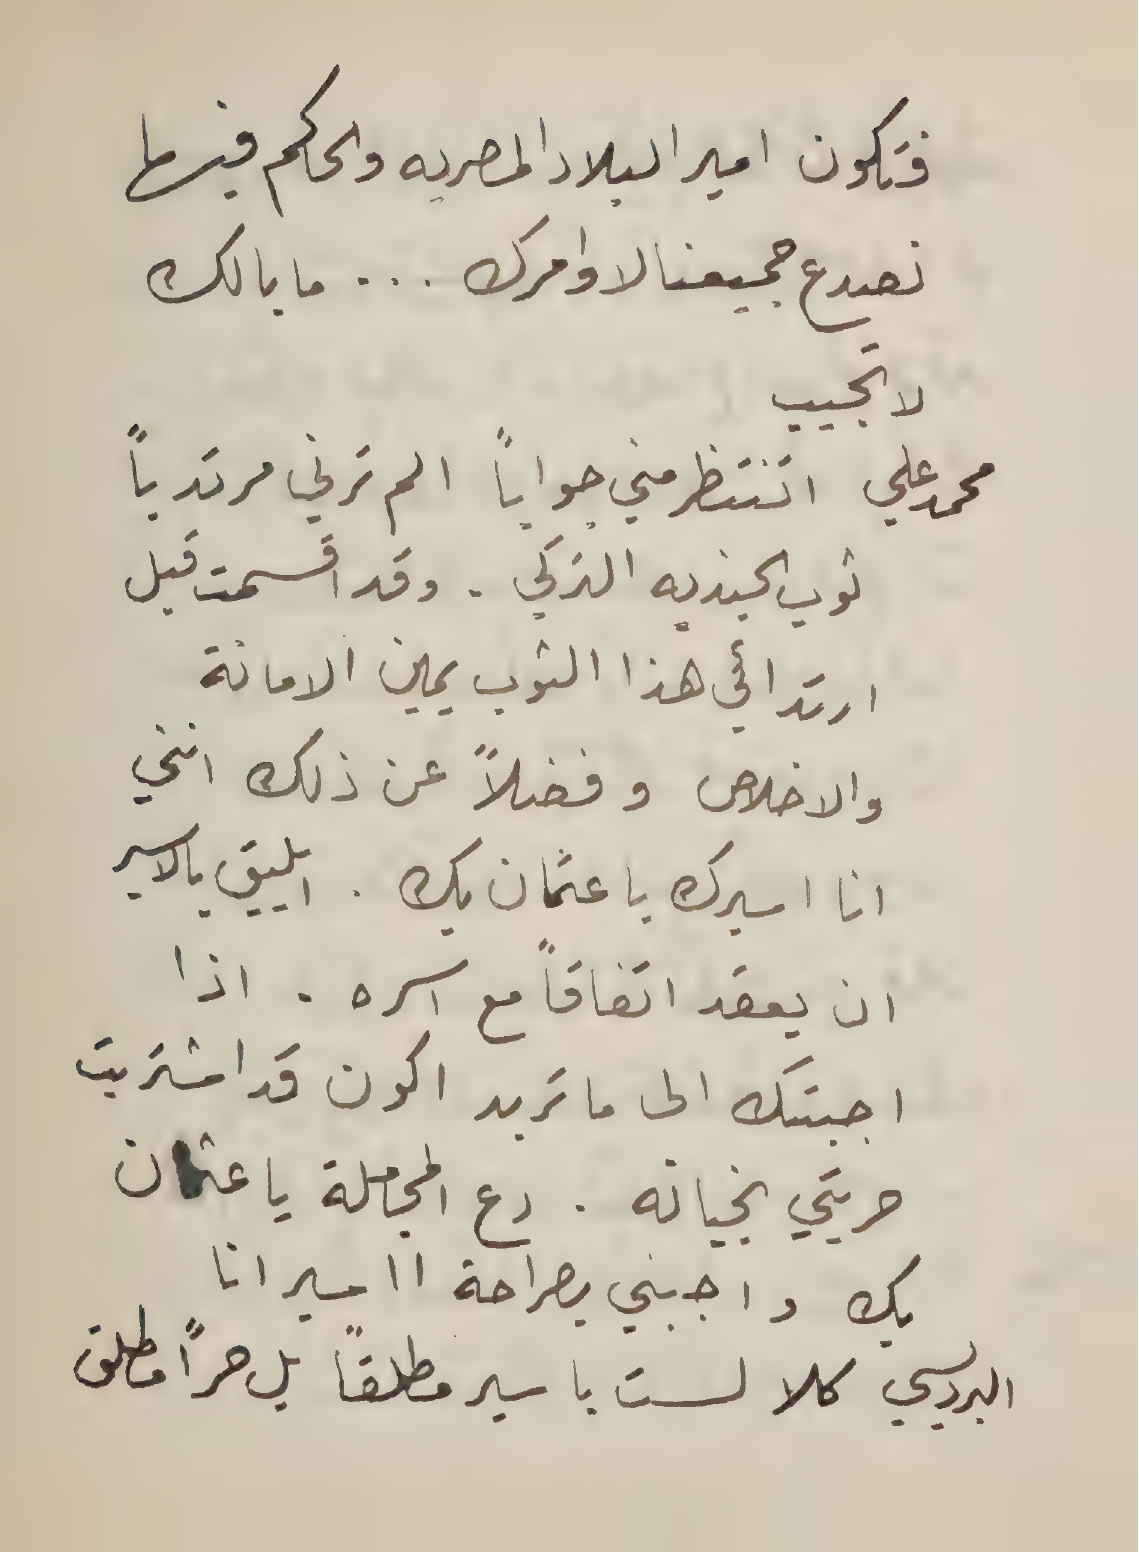 فتكون امير البلاد المصريه والحاكم فيها
نصدع جميعنا لاوامرك ... ما بالك
لا تجيب
محمد علي اتنتظر مني جواباً الم ترني مرتدياً
ثوب الجنديه التركي . وقد اقسمت قبل
ارتدائي هذا الثوب يمين الامانة
والاخلاص و فضلاً عن ذلك انني
انا اسيرك يا عثمان بك . ايليق بالاسير
ان يعقد اتفاقاً مع اسره . اذا
اجبتك الى ما تريد اكون قد اشتريت
حريتي بخيانه . دع المجاملة يا عثمان
بك و اجبني بصراحة ااسير انا
البرديسي كلا لست باسير مطلقاً بل حراً مطلق